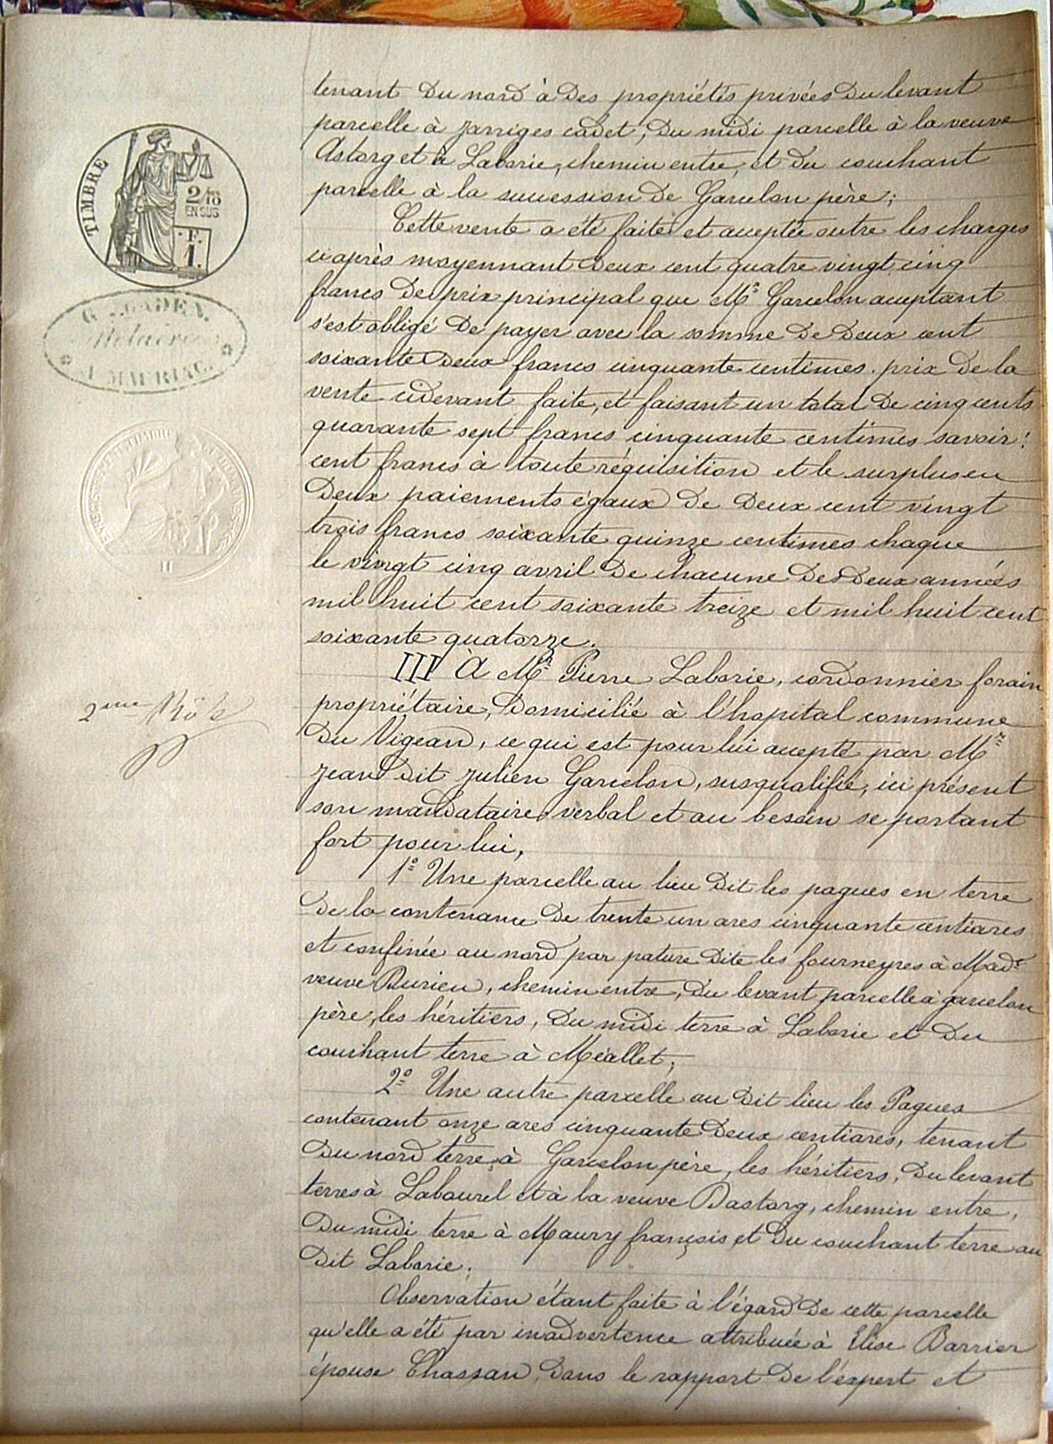 TIMBRE
2/10
EN SUS
F.
1.
Notaire
A MAURIAC
2eme Rôle
tenant du nord à des propriétés privées du levant
parcelle à Jarriges cadet, du midi parcelle à la veuve
Astorg et à Laborie, chemin entre, et du couchant
parcelle à la succession de Garcelon père;
Cette vente a été faite et acceptée outre les charges
ci après moyennant deux cent quatre vingt cinq
francs de prix principal que Mr Garcelon acceptant
s'est obligé de payer avec la somme de deux cent
soixante deux francs cinquante centimes prix de la
vente cidevant faite, et faisant un total de cinq cents
quarante sept francs cinquante centimes savoir:
cent francs à toute réquisition et le surplus en
deux paiements égaux de deux cent vingt
trois francs soixante quinze centimes chaque
le vingt cinq avril de chacune des deux années
mil huit cent soixante treize et mil huit cent
soixante quatorze.
III À Mr Pierre Laborie, cordonnier forain
propriétaire, domicilié à l'hopital commune
du Vigean, ce qui est pour lui accepté par Mr
Jean dit Julien Garcelon, susqualifié, ici présent
son mandataire verbal et au besoin se portant
fort pour lui,
1º Une parcelle au lieu dit les pagues en terre
de la contenance de trente un ares cinquante centiares
et confinée au nord par pature dite les fourneyres à Made
veuve Durieu, chemin entre, du levant parcelle à garcelon
père, les héritiers, du midi terre à Laborie et du
couchant terre à Méallet;
2º Une autre parcelle au dit lieu les Pagues
contenant onze ares cinquante deux centiares, tenant
du nord terre à Garcelon père, les héritiers, du levant
terres à Labourel et à la veuve Dastorg, chemin entre,
du midi terre à Maury françois et du couchant terre au
dit Laborie;
Observation étant faite à l'égard de cette parcelle
qu'elle a été par inadvertence attribuée à Elise Barrier
épouse Chassan, dans le rapport de l'expert et